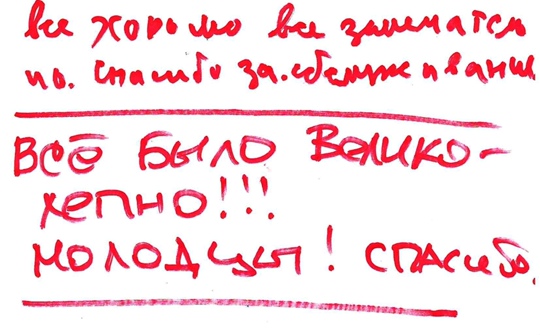 все хорошо все
по. спасибо за. обслуживание
ВСЁ БЫЛО ВЕЛИКО-
ЛЕПНО!!!
МОЛОДЦЫ! СПАСИБО.